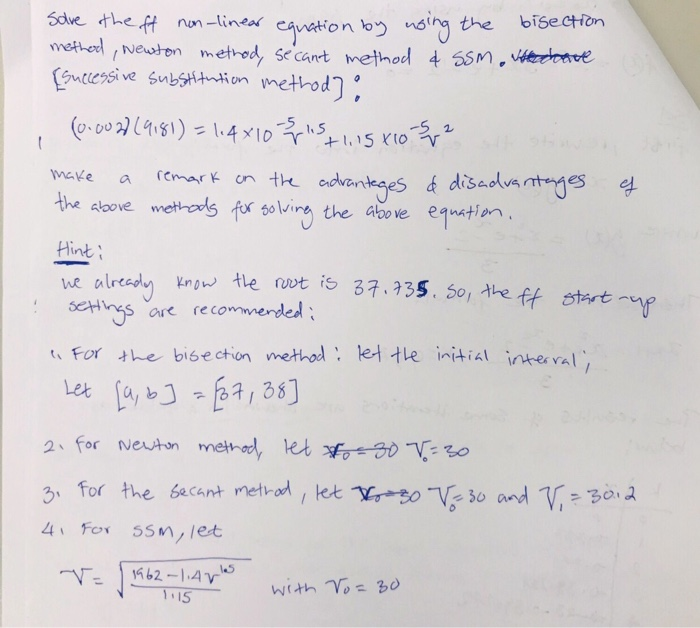 Solve the ff non-linear equation by using the bisection
method, Newton method, secant method & SSM.
[Successive substitution method]:
(0.002)(9.81) = 1.4×10⁻⁵ v^1.5 + 1.15×10⁻⁵ v²
make a remark on the advantages & disadvantages of
the above methods for solving the above equation.
Hint:
we already know the root is 37.735. So, the ff start-up
settings are recommended:
1. For the bisection method: let the initial interval;
Let [a,b] = [37,38]
2. For Newton method, let V₀=30
3. For the secant method, let V₀=30 and V₁=30.2
4. For SSM, let
V = √((1962 - 1.4v^1.5)/1.15) with V₀ = 30